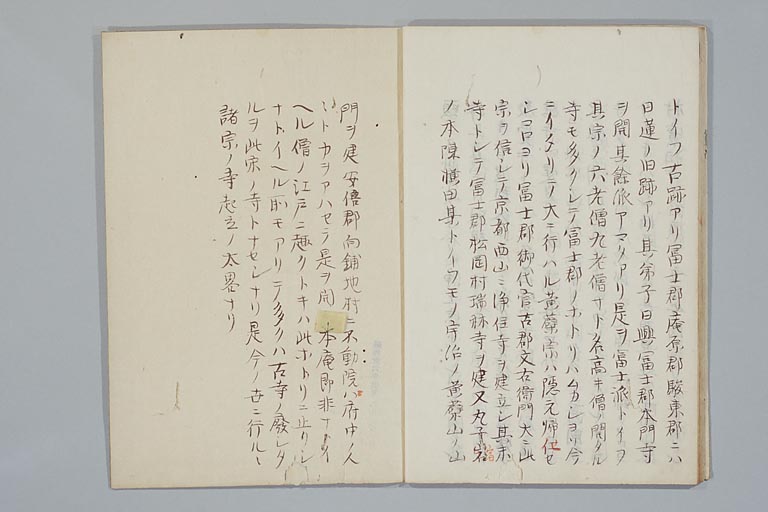 トイフ古跡アリ冨士郡庵原郡駿東郡ニハ
日蓮ノ旧跡アリ其弟子日興冨士郡本門寺
ヲ開其餘派アマタアリ是ヲ冨士派トイヲ
其宗ノ六老僧九老僧ナトノ名高キ僧ノ開タル
寺モ多クシテ冨士郡ノホトリハムカシヨリ今
ニイタリテ大ニ行ハル黄蘗宗ハ隠元帰化セ
シコロヨリ冨士郡御代官古郡文右衛門大ニ此
宗ヲ信シテ京都西山ニ浄住寺ヲ建立シ其余
寺トシテ冨士郡松岡村瑞林寺ヲ建又丸子宿
ノ本陳横田某トイフモノ宇治ノ黄蘗山ノ山
門ヲ建安倍郡向鋪地村ニ不動院ハ府中ノ人
トカヲアハセテ是ヲ開 本庵即非ナトイ
ヘル僧ノ江戸ニ趣クトキハ此ホトリニ止リシ
ナトイヘル所モアリシテ多クハ古寺ノ廃シタ
ルヲ此宗ノ寺トナセシナリ是今ノ世ニ行ルヽ
諸宗ノ寺起立ノ大畧ナリ